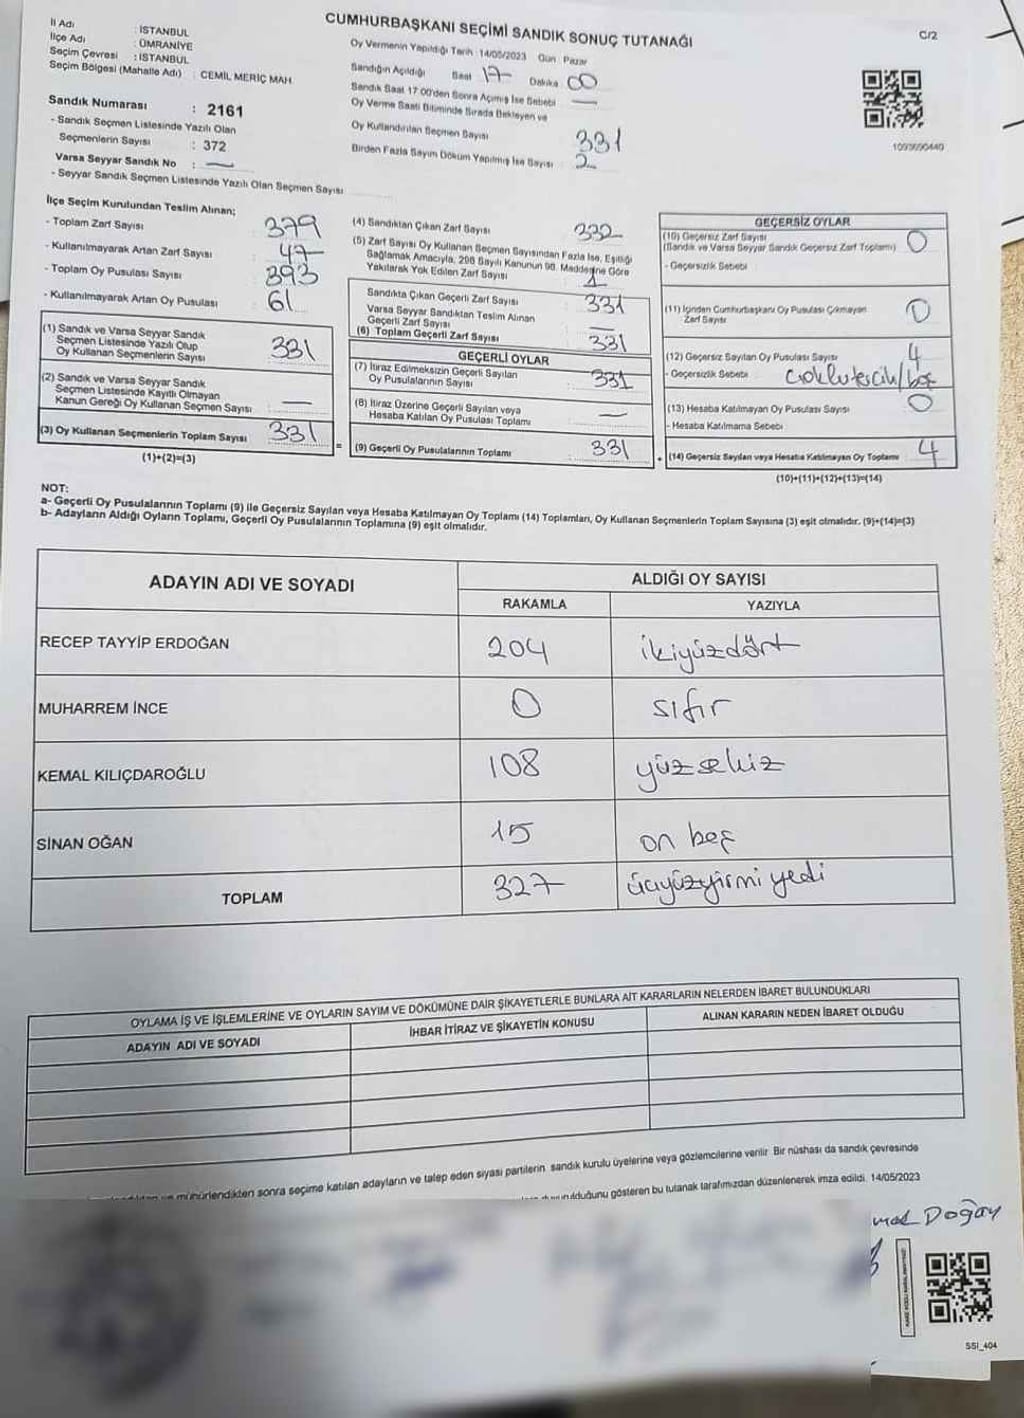 CUMHURBAŞKANI SEÇİMİ SANDIK SONUÇ TUTANAĞI
C/2
İl Adı : İSTANBUL
İlçe Adı : ÜMRANİYE
Seçim Çevresi : İSTANBUL
Seçim Bölgesi (Mahalle Adı) : CEMİL MERİÇ MAH.
Sandık Numarası : 2161
- Sandık Seçmen Listesinde Yazılı Olan
Seçmenlerin Sayısı : 372
Varsa Seyyar Sandık No : —
- Seyyar Sandık Seçmen Listesinde Yazılı Olan Seçmen Sayısı
Oy Vermenin Yapıldığı Tarih : 14/05/2023 Gün : Pazar
Sandığın Açıldığı Saat 17 Dakika 00
Sandık Saat 17.00'den Sonra Açılmış İse Sebebi —
Oy Verme Saati Bitiminde Sırada Bekleyen ve
Oy Kullandırılan Seçmen Sayısı 331
Birden Fazla Sayım Döküm Yapılmış İse Sayısı 2
1093690440
İlçe Seçim Kurulundan Teslim Alınan;
- Toplam Zarf Sayısı : 379
- Kullanılmayarak Artan Zarf Sayısı : 47
- Toplam Oy Pusulası Sayısı : 393
- Kullanılmayarak Artan Oy Pusulası : 61
(1) Sandık ve Varsa Seyyar Sandık
Seçmen Listesinde Yazılı Olup
Oy Kullanan Seçmenlerin Sayısı 331
(2) Sandık ve Varsa Seyyar Sandık
Seçmen Listesinde Kayıtlı Olmayan
Kanun Gereği Oy Kullanan Seçmen Sayısı —
(3) Oy Kullanan Seçmenlerin Toplam Sayısı 331
(1)+(2)=(3)
(4) Sandıktan Çıkan Zarf Sayısı 332
(5) Zarf Sayısı Oy Kullanan Seçmen Sayısından Fazla İse, Eşitliği
Sağlamak Amacıyla, 298 Sayılı Kanunun 98. Maddesine Göre
Yakılarak Yok Edilen Zarf Sayısı 1
Sandıkta Çıkan Geçerli Zarf Sayısı 331
Varsa Seyyar Sandıktan Teslim Alınan
Geçerli Zarf Sayısı —
(6) Toplam Geçerli Zarf Sayısı 331
GEÇERLİ OYLAR
(7) İtiraz Edilmeksizin Geçerli Sayılan
Oy Pusulalarının Sayısı 331
(8) İtiraz Üzerine Geçerli Sayılan veya
Hesaba Katılan Oy Pusulası Toplamı —
= (9) Geçerli Oy Pusulalarının Toplamı 331
GEÇERSİZ OYLAR
(10) Geçersiz Zarf Sayısı 0
(Sandık ve Varsa Seyyar Sandık Geçersiz Zarf Toplamı)
- Geçersizlik Sebebi
(11) İçinden Cumhurbaşkanı Oy Pusulası Çıkmayan
Zarf Sayısı 0
(12) Geçersiz Sayılan Oy Pusulası Sayısı 4
- Geçersizlik Sebebi Çoklu tercih/boş
(13) Hesaba Katılmayan Oy Pusulası Sayısı 0
- Hesaba Katılmama Sebebi
+ (14) Geçersiz Sayılan veya Hesaba Katılmayan Oy Toplamı 4
(10)+(11)+(12)+(13)=(14)
NOT:
a- Geçerli Oy Pusulalarının Toplamı (9) ile Geçersiz Sayılan veya Hesaba Katılmayan Oy Toplamı (14) Toplamları, Oy Kullanan Seçmenlerin Toplam Sayısına (3) eşit olmalıdır. (9)+(14)=(3)
b- Adayların Aldığı Oyların Toplamı, Geçerli Oy Pusulalarının Toplamına (9) eşit olmalıdır.
ADAYIN ADI VE SOYADI
ALDIĞI OY SAYISI
RAKAMLA YAZIYLA
RECEP TAYYİP ERDOĞAN 204 ikiyüzdört
MUHARREM İNCE 0 sıfır
KEMAL KILIÇDAROĞLU 108 yüzsekiz
SİNAN OĞAN 15 on beş
TOPLAM 327 üçyüzyirmi yedi
OYLAMA İŞ VE İŞLEMLERİNE VE OYLARIN SAYIM VE DÖKÜMÜNE DAİR ŞİKAYETLERLE BUNLARA AİT KARARLARIN NELERDEN İBARET BULUNDUKLARI
ADAYIN ADI VE SOYADI İHBAR İTİRAZ VE ŞİKAYETİN KONUSU ALINAN KARARIN NEDEN İBARET OLDUĞU
mühürlendikten sonra seçime katılan adayların ve talep eden siyasi partilerin sandık kurulu üyelerine veya gözlemcilerine verilir. Bir nüshası da sandık çevresinde
olduğunu gösteren bu tutanak tarafımızdan düzenlenerek imza edildi. 14/05/2023
Doğay
SSİ_404